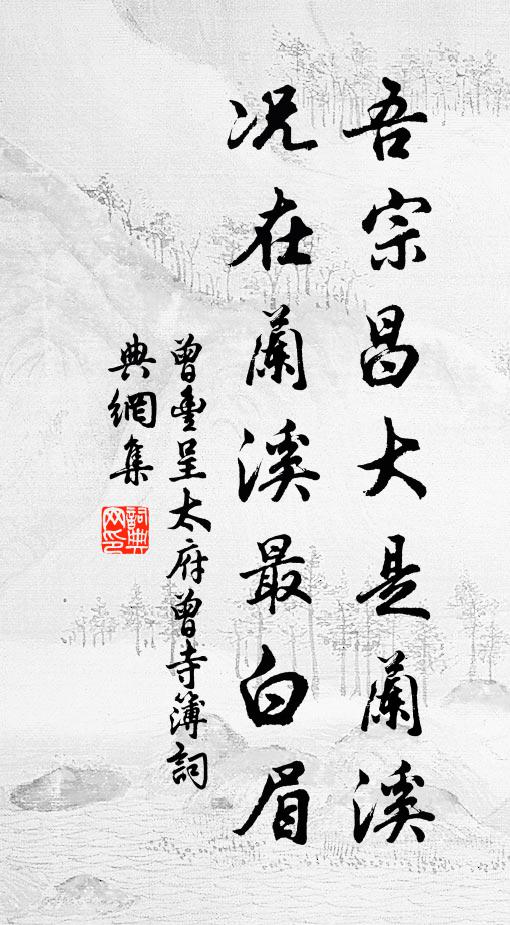 吾宗昌大是蘭溪
况在蘭溪最白眉
曾豐呈太府曾寺簿詞
典網集
詞典網印